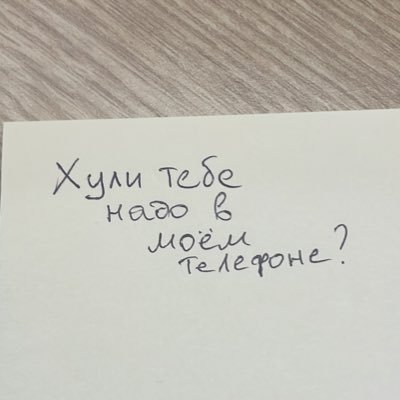 Хули тебе
надо в
моём
телефоне?